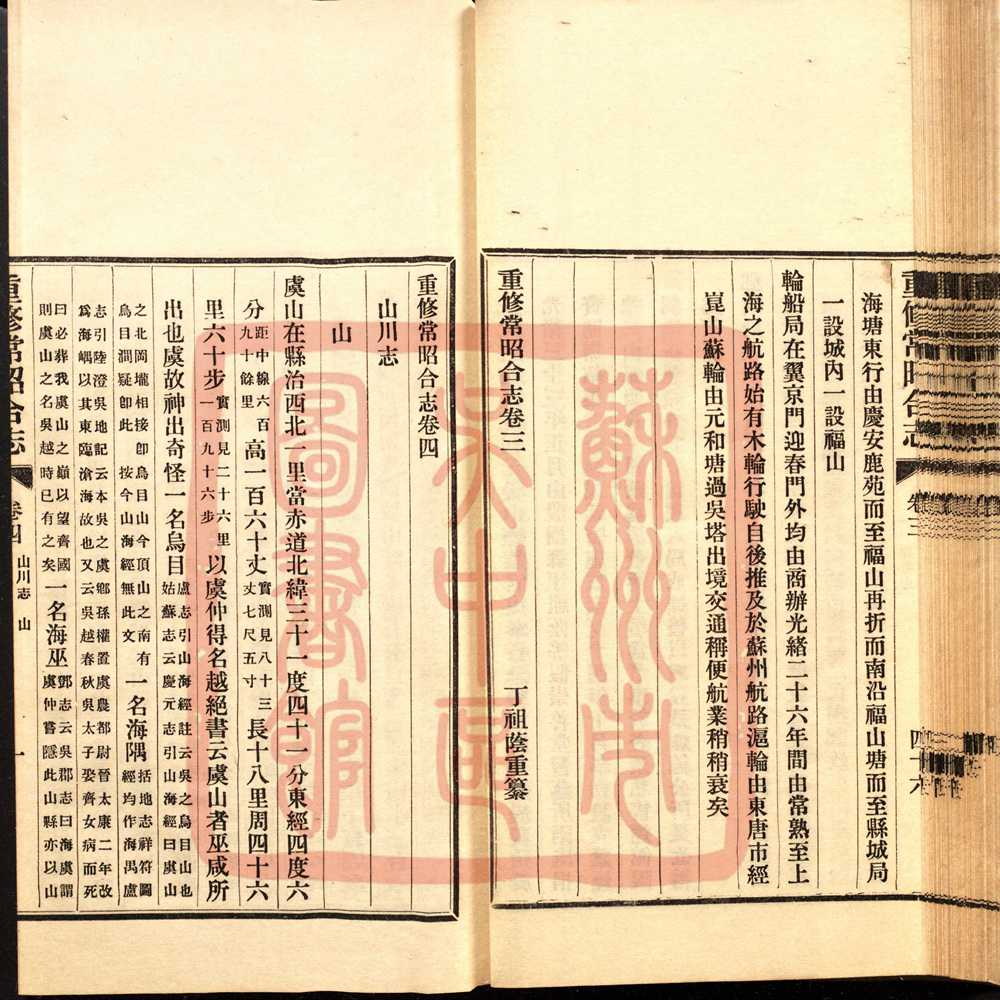 海塘東行由慶安鹿苑而至福山再折而南沿福山塘而至縣城局
一設城內一設福山
輪船局在翼京門迎春門外均由商辦光緒二十六年間由常熟至上
海之航路始有木輪行駛自後推及於蘇州航路滬輪由東唐市經
崑山蘇輪由元和塘過吳塔出境交通稱便航業稍稍衰矣
丁祖蔭重纂
重修常昭合志卷三
重修常昭合志
卷三
四十六
重修常昭合志卷四
山川志
山
虞山在縣治西北一里當赤道北緯三十一度四十一分東經四度六
分距中線六百九十餘里高一百六十丈實測見八十三丈七尺五寸長十八里周四十六
里六十步實測見二十六里一百九十六步以虞仲得名越絕書云虞山者巫咸所
出也虞故神出奇怪一名烏目盧志引山海經註云吳之烏目山也姑蘇志云慶元志引山海經曰虞山
之北岡壠相接卽烏目山今頂山之南有烏目澗疑卽此 按今山海經無此文一名海隅括地志祥符圖經均作海禺盧
志引陸澄吳地記云本吳之虞鄉孫權置虞農都尉晉太康二年改爲海嵎以其東臨滄海故也又云吳越春秋吳太子娶齊女病而死
曰必葬我虞山之巔以望齊國則虞山之名吳越時已有之矣一名海巫鄧志云吳郡志曰海虞謂虞仲嘗隱此山縣亦以山
重修常昭合志
卷四
山川志 山
一
蘇州市
吳中區
圖書館